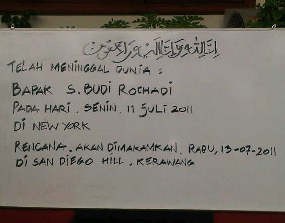 إنا لله وإنا إليه راجعون
TELAH MENINGGAL DUNIA :
BAPAK S. BUDI ROCHADI
PADA HARI . SENIN, 11 JULI 2011
DI NEW YORK
RENCANA . AKAN DIMAKAMKAN . RABU, 13-07-2011
DI SAN DIEGO HILL , KERAWANG